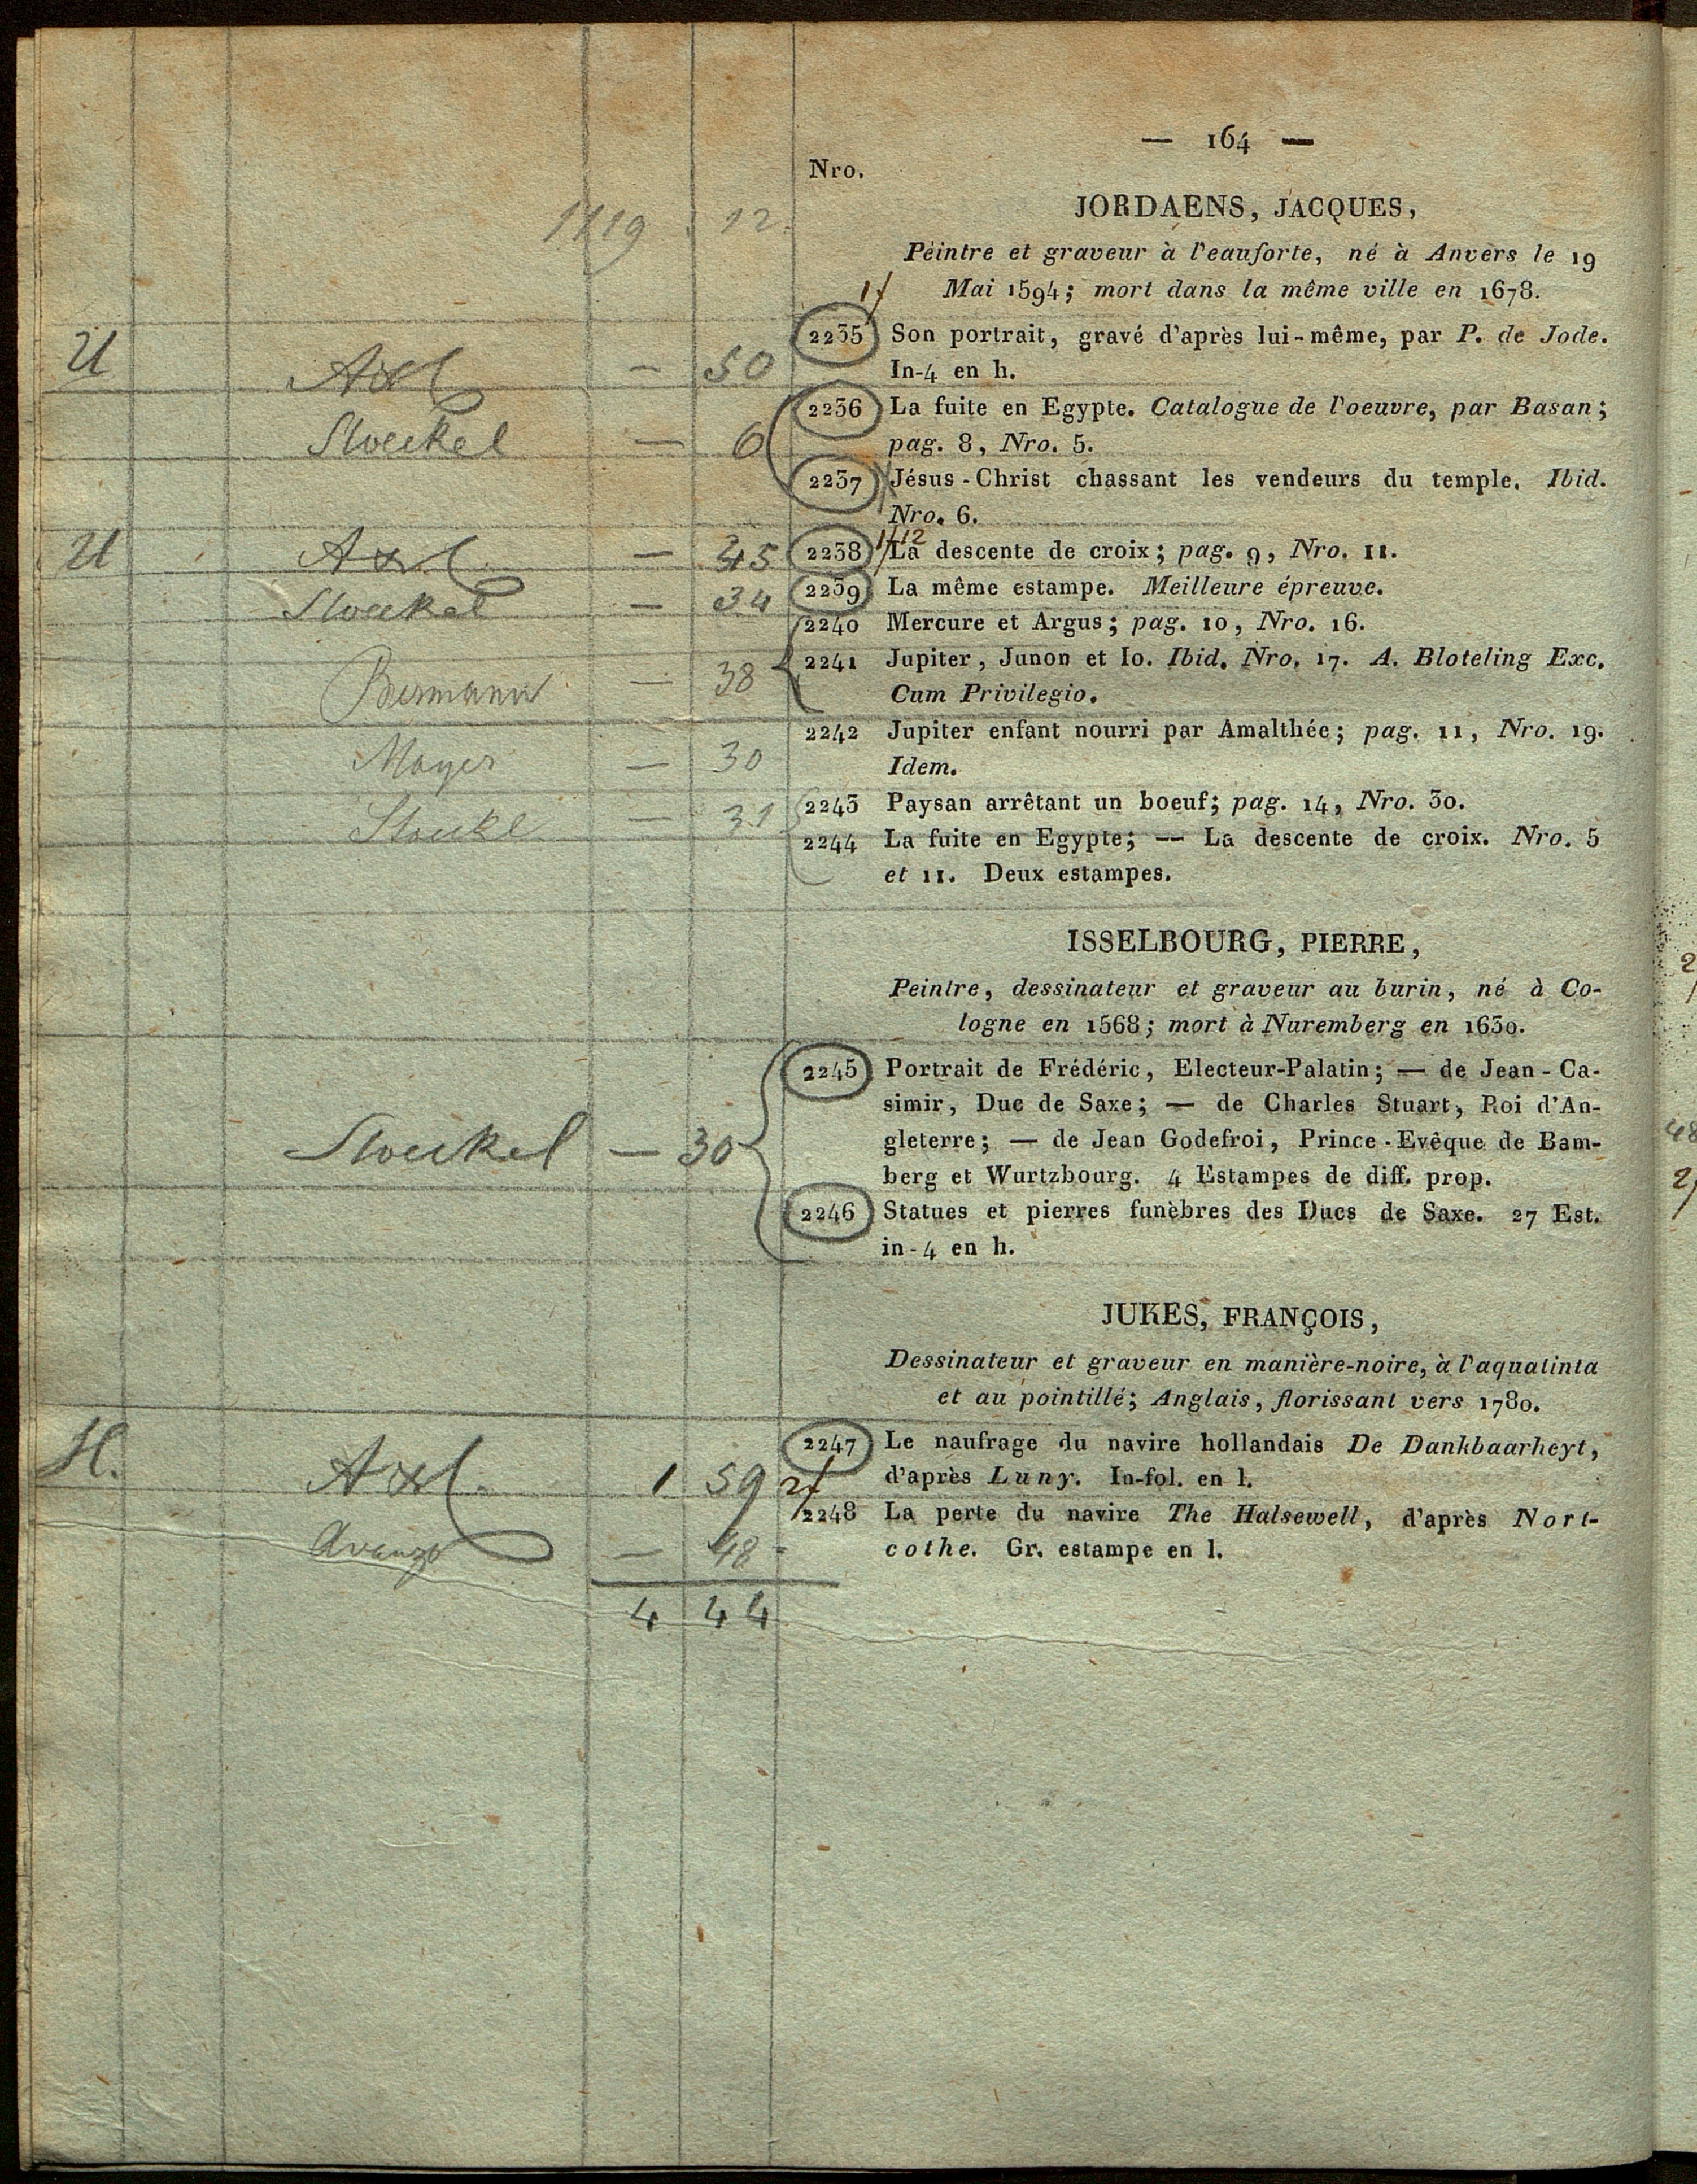 — 164 —
Nro.
1119 12.
JORDAENS, JACQUES,
Peintre et graveur à l'eauforte, né à Anvers le 19
Mai 1594; mort dans la même ville en 1678.
1f
U Axl — 50
2235 Son portrait, gravé d'après lui-même, par P. de Jode.
In-4 en h.
Stoeckel — 6
2236 La fuite en Egypte. Catalogue de l'oeuvre, par Basan;
pag. 8, Nro. 5.
2237 Jésus-Christ chassant les vendeurs du temple. Ibid.
Nro. 6.
U Axl — 45
1f12
2238 La descente de croix; pag. 9, Nro. 11.
Stoeckel — 34
2239 La même estampe. Meilleure épreuve.
2240 Mercure et Argus; pag. 10, Nro. 16.
Bermann — 38
2241 Jupiter, Junon et Io. Ibid. Nro. 17. A. Bloteling Exc.
Cum Privilegio.
Mayer — 30
2242 Jupiter enfant nourri par Amalthée; pag. 11, Nro. 19.
Idem.
Stoeckl — 31
2243 Paysan arrêtant un boeuf; pag. 14, Nro. 30.
2244 La fuite en Egypte; — La descente de croix. Nro. 5
et 11. Deux estampes.
ISSELBOURG, PIERRE,
Peintre, dessinateur et graveur au burin, né à Co-
logne en 1568; mort à Nuremberg en 1630.
2245 Portrait de Frédéric, Electeur-Palatin; — de Jean-Ca-
simir, Duc de Saxe; — de Charles Stuart, Roi d'An-
gleterre; — de Jean Godefroi, Prince-Evêque de Bam-
berg et Wurtzbourg. 4 Estampes de diff. prop.
Stoeckel — 30
2246 Statues et pierres funèbres des Ducs de Saxe. 27 Est.
in-4 en h.
JUKES, FRANÇOIS,
Dessinateur et graveur en manière-noire, à l'aquatinta
et au pointillé; Anglais, florissant vers 1780.
H. Axl. 1 59
2247 Le naufrage du navire hollandais De Dankbaarheyt,
d'après Luny. In-fol. en l.
2f
Avanzo — 48
2248 La perte du navire The Halsewell, d'après Nort-
cothe. Gr. estampe en l.
4 44